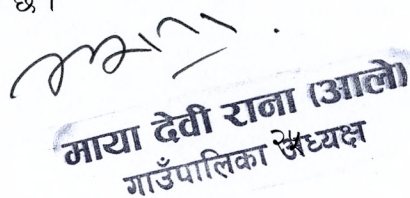 छ।
माया देवी राना (आले)
गाउँपालिका अध्यक्ष